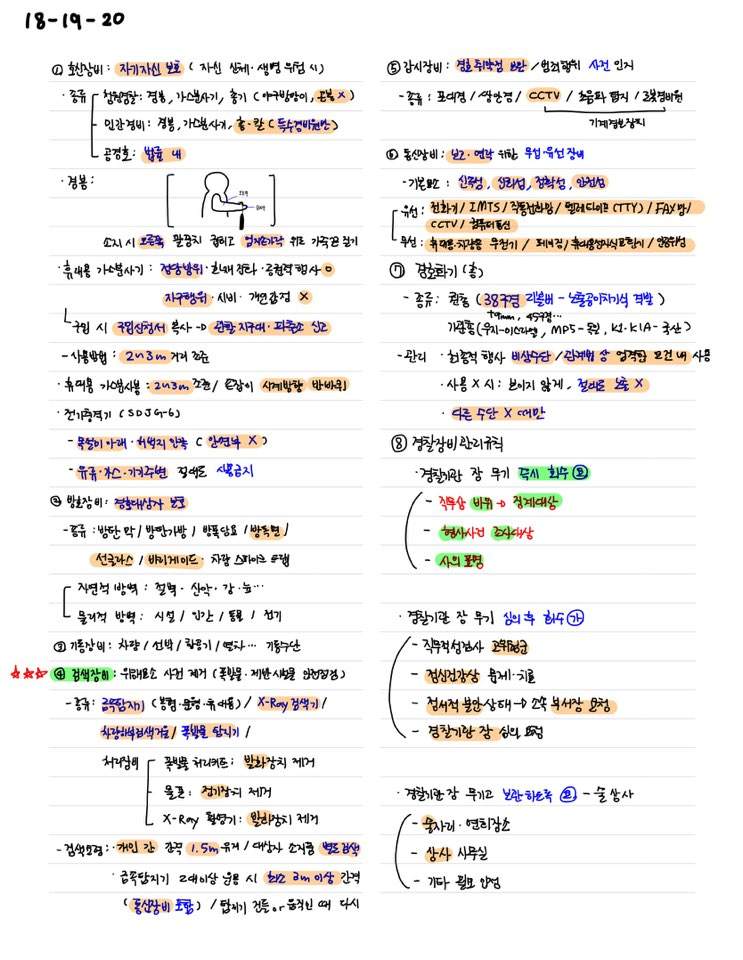 18-19-20
① 호신장비 : 자기자신 보호 ( 자신 신체·생명 위험 시 )
· 종류 청원경찰 : 경봉, 가스분사기, 총기 ( 야구방망이, 곤봉 X )
민간경비 : 경봉, 가스분사기, 총·칼 ( 특수경비원만 )
공경호 : 법률 내
· 경봉 :
소지 시 오른쪽 팔꿈치 굽히고 엄지손가락 위로 가죽끈 걸기
· 휴대용 가스분사기 : 정당방위·현행범·공권력행사 O
자구행위·시비·개인감정 X
구입 시 구입신청서 복사 → 관할 지구대·파출소 신고
- 사용방법 : 2~3m 거리 조준
· 휴대용 가스분사봉 : 2~3m 조준 / 손잡이 시계방향 반바퀴
· 전기충격기 ( SDJG-6 )
- 목덜미 아래·허벅지 안쪽 ( 안면부 X )
- 유류·가스·기기주변 절대로 사용금지
② 방호장비 : 경호대상자 보호
- 종류 : 방탄 막 / 방탄가방 / 방폭담요 / 방독면 /
선글라스 / 바리케이드·차량 스파이크 트랩
자연적 방벽 : 절벽·산악·강·늪…
물리적 방벽 : 시설 / 인간 / 동물 / 전기
③ 기동장비 : 차량 / 선박 / 항공기 / 열차… 기동수단
☆☆☆ ④ 검색장비 : 위해요소 사전 제거 ( 폭발물·제반시설물 안전점검 )
- 종류 : 금속탐지기 ( 봉형·문형·휴대용 ) / X-Ray 검색기 /
차량하부검색거울 / 폭발물 탐지기 /
처리장비 폭발물 처리키트 : 발화장치 제거
물포 : 전기장치 제거
X-Ray 촬영기 : 발화장치 제거
- 검색요령 : 개인 간 간격 1.5m 유지 / 대상자 소지품 별도검색
· 금속탐지기 2대이상 운용 시 최소 3m 이상 간격
( 통신장비 포함 ) / 탐지기 건든 or 움직인 때 다시
⑤ 감시장비 : 경호 취약점 보완 / 범죄행위 사전 인지
- 종류 : 포대경 / 쌍안경 / CCTV / 초음파 탐지 / 로봇경비원
기계정보장치
⑥ 통신장비 : 보고·연락 위한 무선·유선 장비
- 기본요소 : 신속성, 신뢰성, 정확성, 안전성
유선 : 전화기 / IMTS / 자동전화망 / 텔레타이프 (TTY) / FAX망 /
CCTV / 컴퓨터통신
무선 : 휴대용·차량용 무전기 / 페이징 / 휴대용전자식교환기 / 인공위성
⑦ 경호화기 ( 총 )
- 종류 : 권총 ( 38구경 리볼버 - 노출공이치기식 격발 )
+9mm, 45구경…
기관총 ( 우지-이스라엘, MP5-독일, K1·K1A-국산 )
- 관리 · 최종적 행사 비상수단 / 관계법 상 엄격한 요건 내 사용
· 사용 X 시 : 보이지 않게, 절대로 노출 X
· 다른 수단 X 때만
⑧ 경찰장비관리규칙
· 경찰기관 장 무기 즉시 회수 ㊒
- 직무상 비위 → 징계대상
- 형사사건 조사대상
- 사의 표명
· 경찰기관 장 무기 심의 후 회수 ㉮
- 직무적성검사 고위험군
- 정신건강상 문제·치료
- 정서적 불안상태 → 소속 부서장 요청
- 경찰기관 장 심의 요청
· 경찰기관 장 무기고 보관하도록 - 술상사
- 술자리·연회장소
- 상사 사무실
- 기타 필요 인정